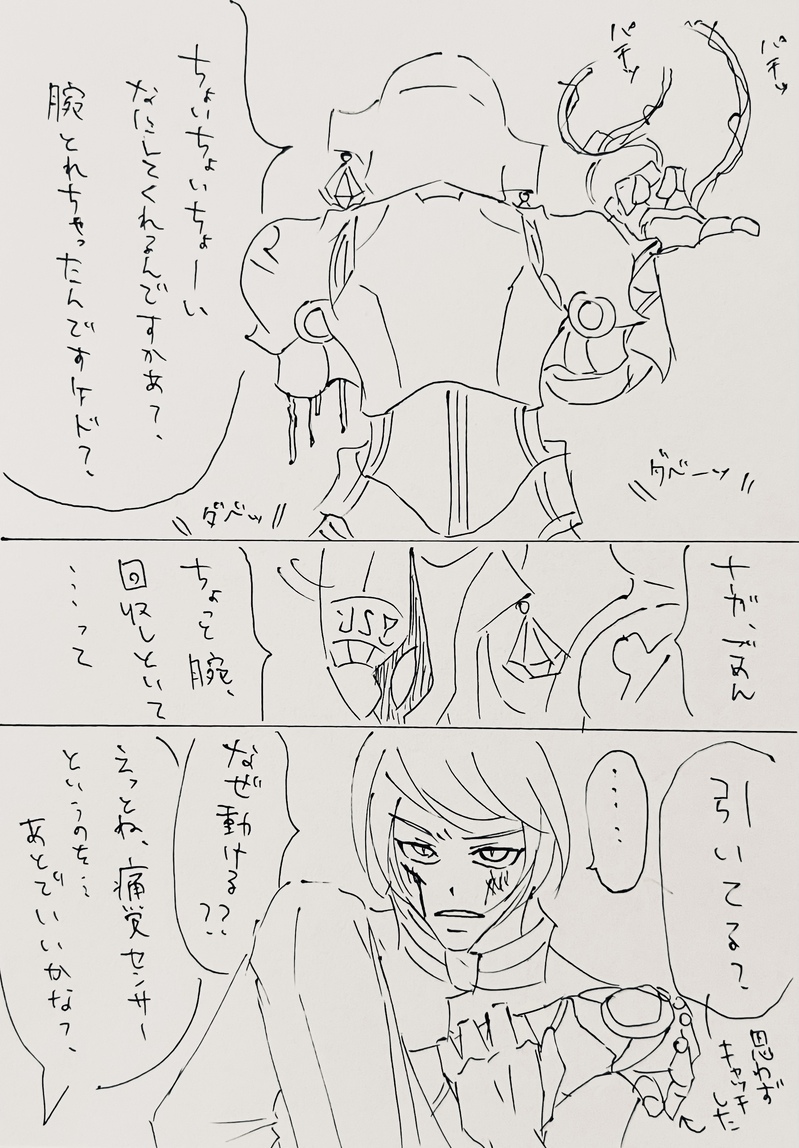 パチッ
パチッ
ちょいちょいちょーい
なにしてくれるんですかあ?、
腕とれちゃったんですケド?、
ダベーッ
ダベッ
ちょっと腕、
回収しといて
……って
引いてる?
……
なぜ動ける??
えっとね、痛覚センサー
というのを…
あとでいいかな?、
思わず
キャッチ
した